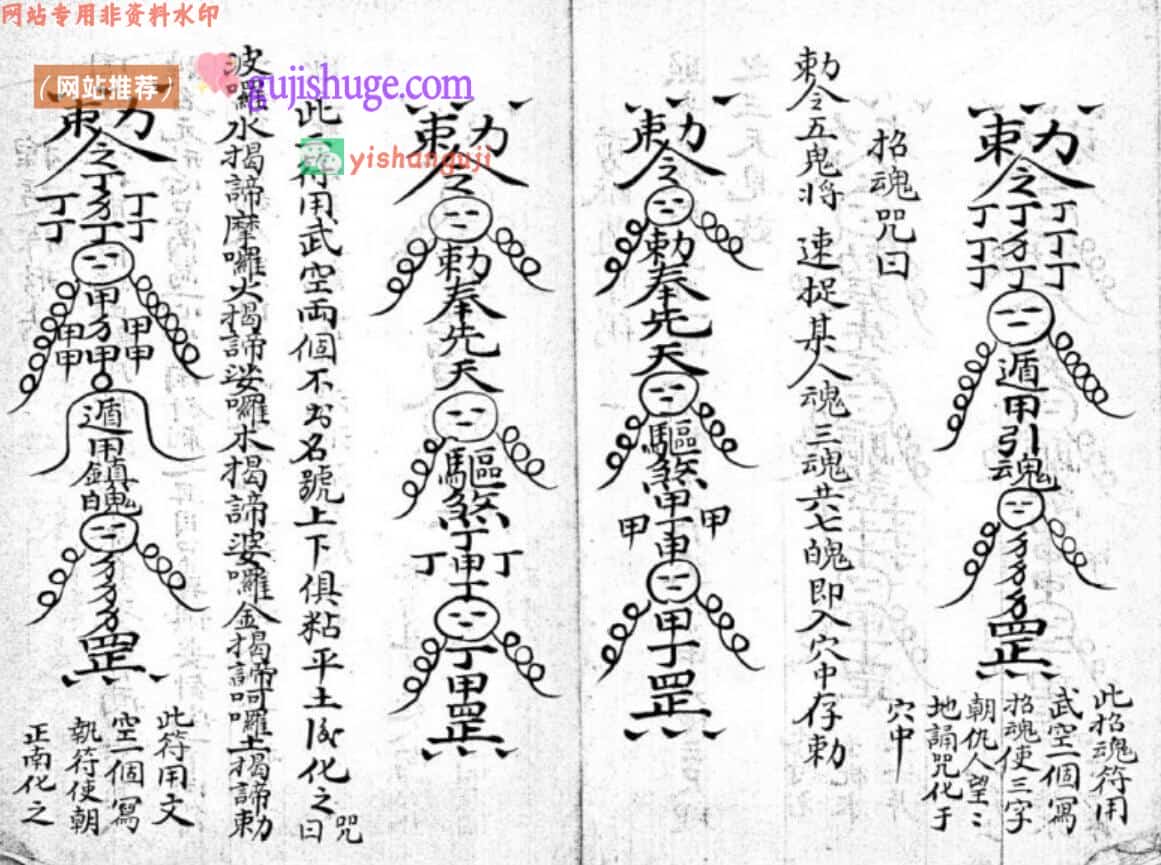 网站专用非资料水印
（网站推荐）
gujishuge.com
yishanguji
勅令
丁丁丁
丁万丁
丁丁丁
遁甲引魂
罡
此招魂符用
武空一個寫
招魂使三字
朝仇人望〻
地誦咒化于
穴中
招魂咒曰
勅令五鬼将速捉某人魂三魂共七魄即入穴中存勅
勅令
勅奉先天
驅煞
甲
甲 甲
甲丁罡
勅令
勅奉先天
驅煞
丁
丁甲丁
丁甲罡
此二符用武空兩個不书名號上下俱粘平土后化之曰
咒
波囉水揭諦摩囉火揭諦娑囉木揭諦婆囉金揭諦呵囉土揭諦勅
勅令
丁
丁万丁
丁丁丁
甲
甲万甲
甲甲甲
遁甲鎮魄
罡
此符用文
空一個寫
執符使朝
正南化之